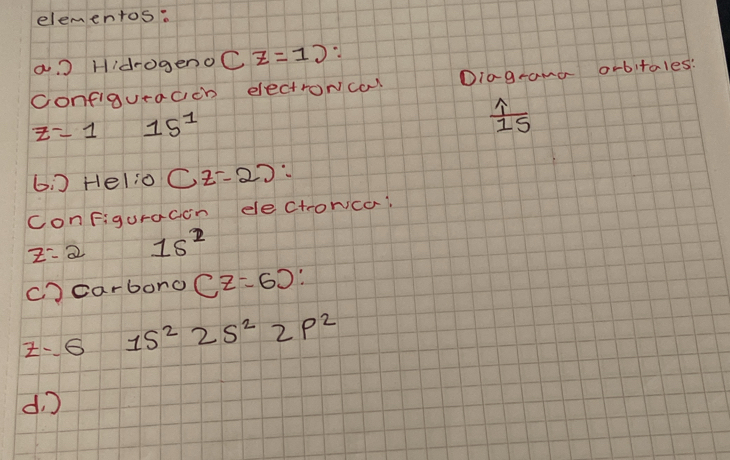 elementos:
a.) Hidrogeno (Z=1):
Configuración electronica
Z=1 1S¹
Diagrama orbitales:
↑
1S
b.) Helio (Z=2):
Configuración electronica:
Z=2 1S²
c.) Carbono (Z=6):
Z=6 1S² 2S² 2P²
d.)